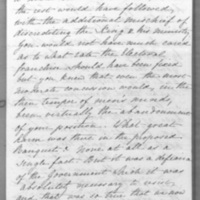 the rest would have followed,
with the additional mischief of
discrediting the King & his ministry
you would not have much cared
as to what rate the Electoral
franchise should have been fixed
but you knew that even the most
moderate concession would, in the
then temper of men's minds,
have virtually the abandonment
of your position. What great
harm was there in the proposed
Banquet? None at all, as a
single fact. But it was a defiance
of the Government which it was
absolutely necessary to resist,
and that was so true that as soon